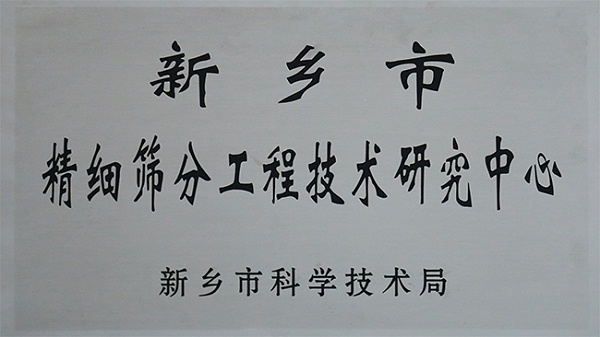 新乡市
精细筛分工程技术研究中心
新乡市科学技术局